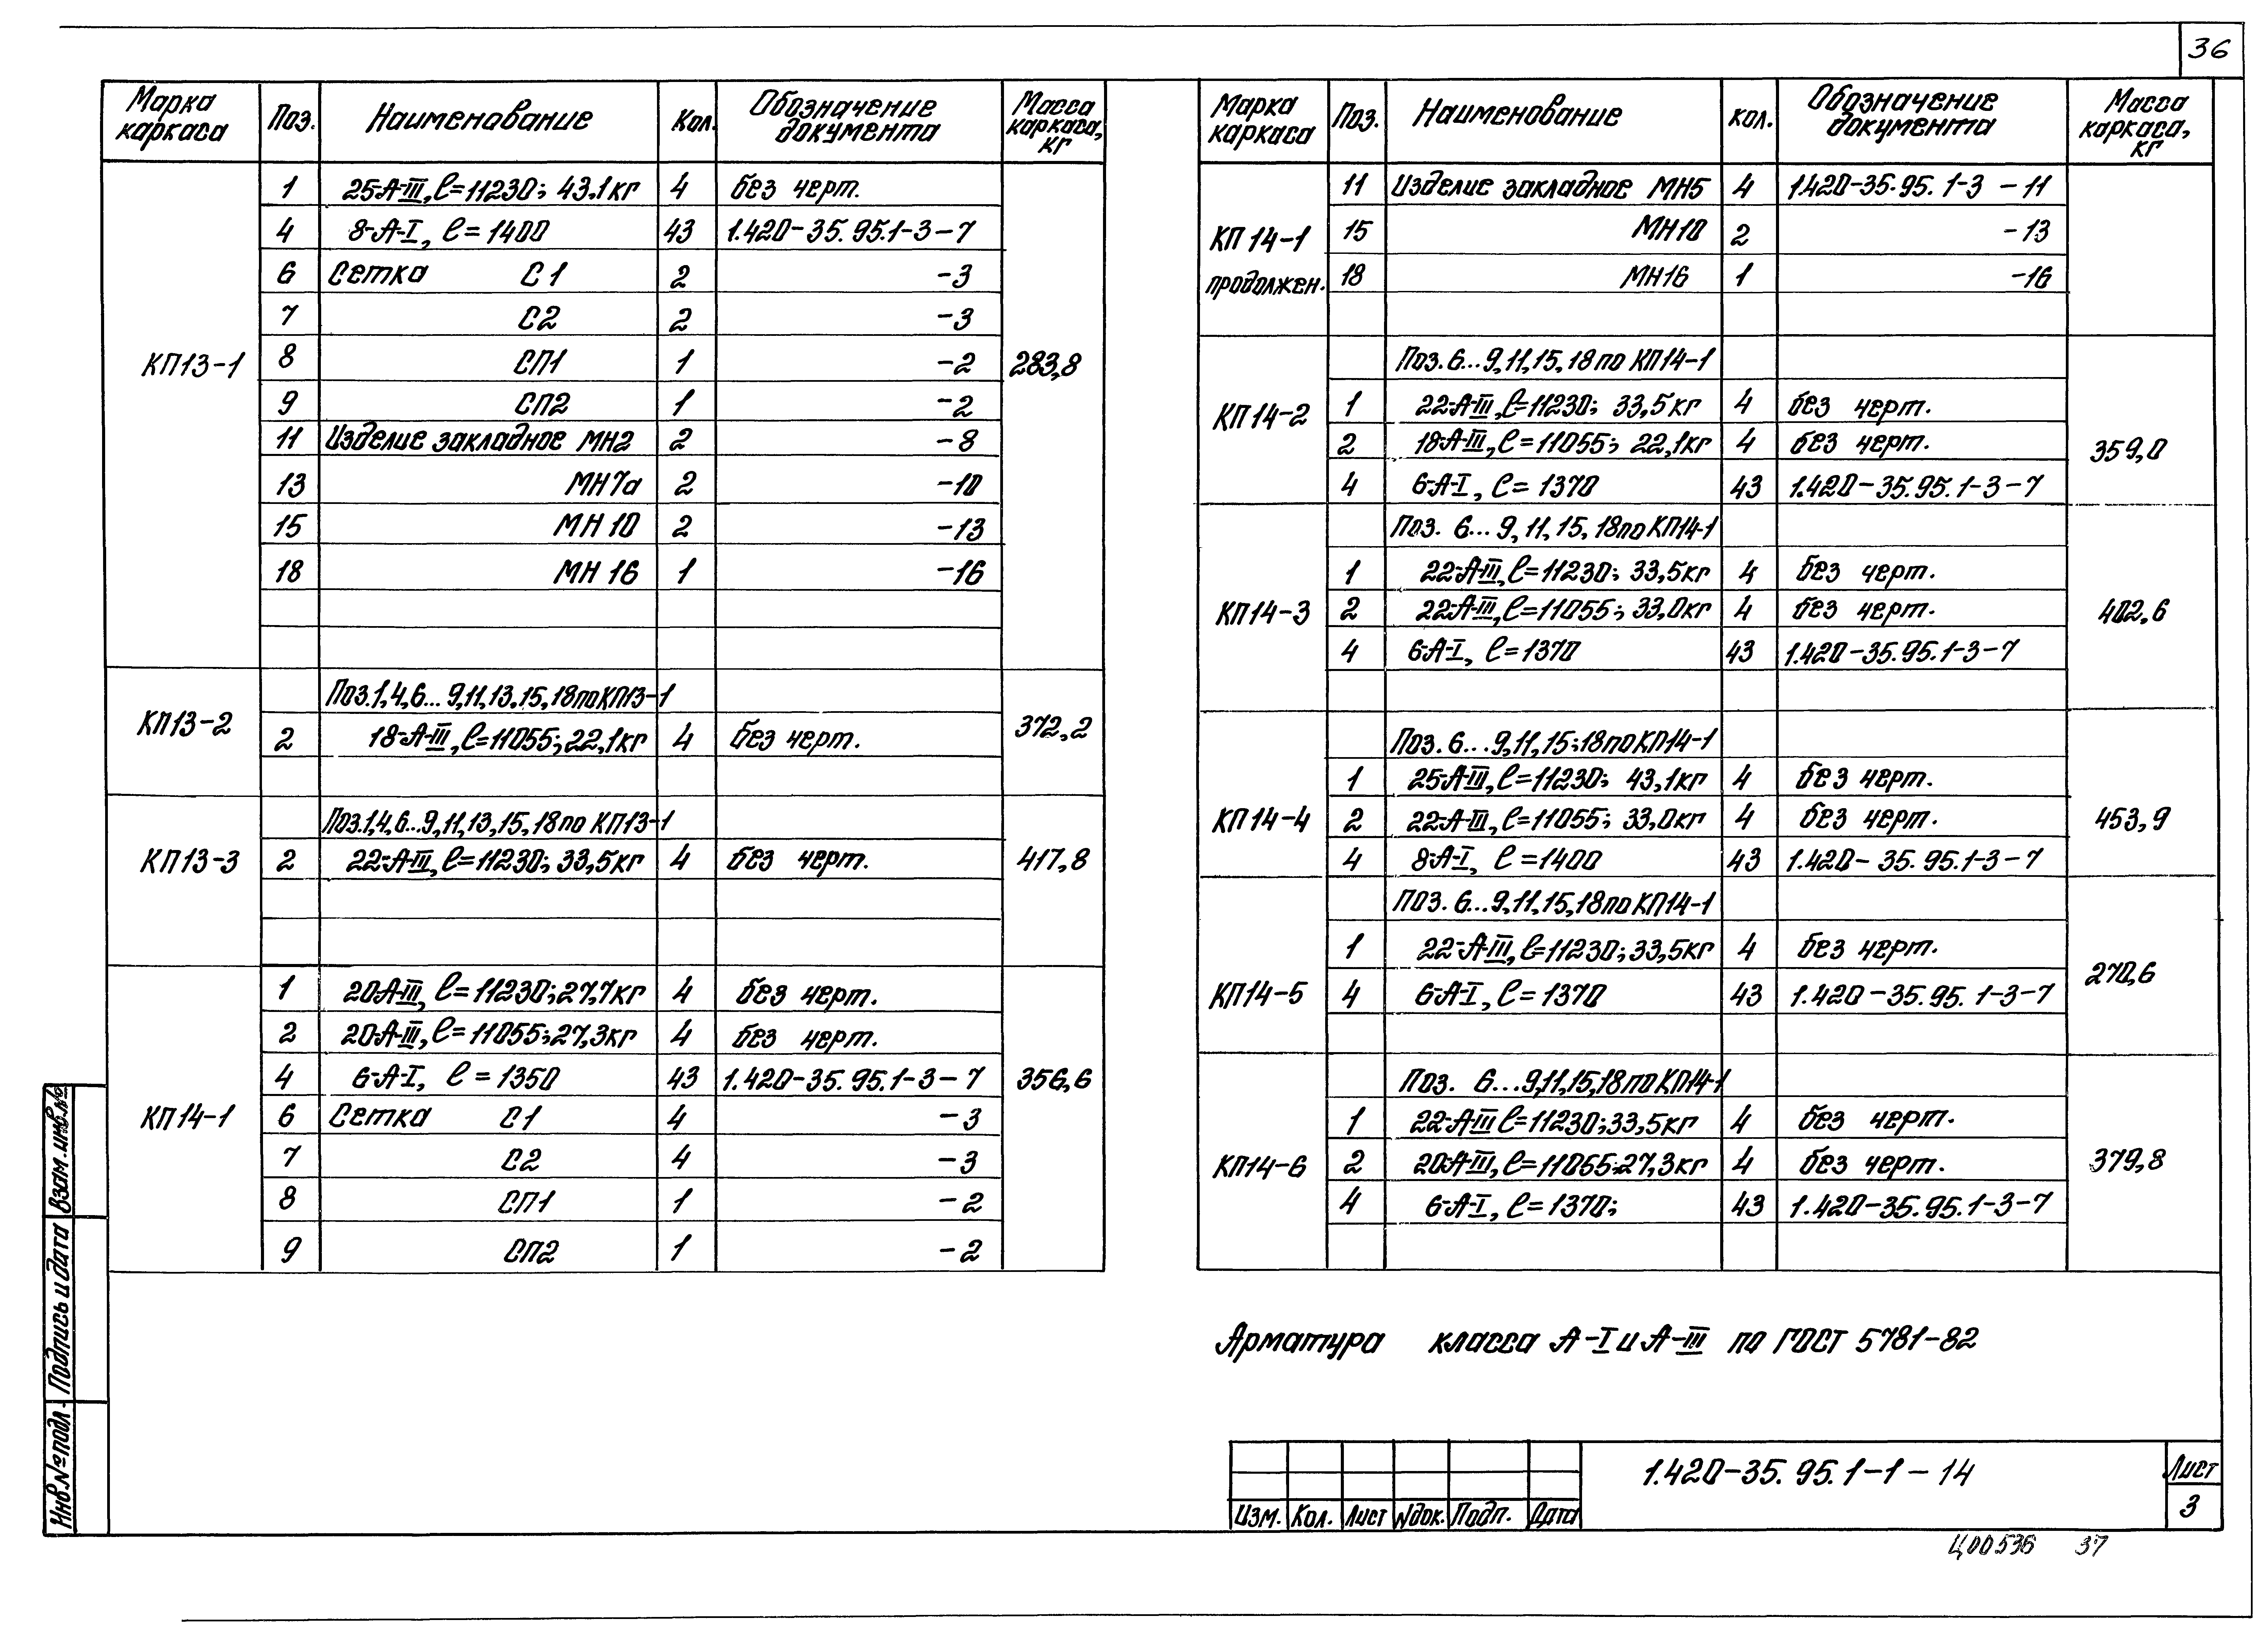 36
Марка каркаса | Поз. | Наименование | Кол. | Обозначение документа | Масса каркаса, кг
КП13-1 | 1 | 25-А-III, ℓ=11230; 43,1кг | 4 | без черт. | 283,8
4 | 8-А-I, ℓ=1400 | 43 | 1.420-35.95.1-3-7
6 | Сетка С1 | 2 | -3
7 | С2 | 2 | -3
8 | СП1 | 1 | -2
9 | СП2 | 1 | -2
11 | Изделие закладное МН2 | 2 | -8
13 | МН7а | 2 | -10
15 | МН10 | 2 | -13
18 | МН16 | 1 | -16
КП13-2 | Поз.1,4,6...9,11,13,15,18 по КП13-1 | 372,2
2 | 18-А-III, ℓ=11055; 22,1кг | 4 | без черт.
КП13-3 | Поз.1,4,6...9,11,13,15,18 по КП13-1 | 417,8
2 | 22-А-III, ℓ=11230; 33,5кг | 4 | без черт.
КП14-1 | 1 | 20А-III, ℓ=11230; 27,7кг | 4 | без черт. | 356,6
2 | 20-А-III, ℓ=11055; 27,3кг | 4 | без черт.
4 | 6-А-I, ℓ=1350 | 43 | 1.420-35.95.1-3-7
6 | Сетка С1 | 4 | -3
7 | С2 | 4 | -3
8 | СП1 | 1 | -2
9 | СП2 | 1 | -2
Марка каркаса | Поз. | Наименование | кол. | Обозначение документа | Масса каркаса, кг
КП14-1 продолжен. | 11 | Изделие закладное МН5 | 4 | 1.420-35.95.1-3-11
15 | МН10 | 2 | -13
18 | МН16 | 1 | -16
КП14-2 | Поз.6...9,11,15,18 по КП14-1 | 359,0
1 | 22-А-III, ℓ=11230; 33,5кг | 4 | без черт.
2 | 18-А-III, ℓ=11055; 22,1кг | 4 | без черт.
4 | 6-А-I, ℓ=1370 | 43 | 1.420-35.95.1-3-7
КП14-3 | Поз. 6...9,11,15,18 по КП14-1 | 402,6
1 | 22-А-III, ℓ=11230; 33,5кг | 4 | без черт.
2 | 22-А-III, ℓ=11055; 33,0кг | 4 | без черт.
4 | 6-А-I, ℓ=1370 | 43 | 1.420-35.95.1-3-7
КП14-4 | Поз.6...9,11,15;18 по КП14-1 | 453,9
1 | 25-А-III, ℓ=11230; 43,1кг | 4 | без черт.
2 | 22-А-III, ℓ=11055; 33,0кг | 4 | без черт.
4 | 8-А-I, ℓ=1400 | 43 | 1.420-35.95.1-3-7
КП14-5 | Поз.6...9,11,15,18 по КП14-1 | 270,6
1 | 22-А-III, ℓ=11230; 33,5кг | 4 | без черт.
4 | 6-А-I, ℓ=1370 | 43 | 1.420-35.95.1-3-7
КП14-6 | Поз. 6...9,11,15,18 по КП14-1 | 379,8
1 | 22-А-III ℓ=11230; 33,5кг | 4 | без черт.
2 | 20-А-III, ℓ=11065; 27,3кг | 4 | без черт.
4 | 6-А-I, ℓ=1370; | 43 | 1.420-35.95.1-3-7
Арматура класса А-I и А-III по ГОСТ 5781-82
Взам.инв.№
Подпись и дата
Инв.№подл.
1.420-35.95.1-1-14
Лист
3
Изм. Кол. Лист Nдок. Подп. Дата
Ц00536 37